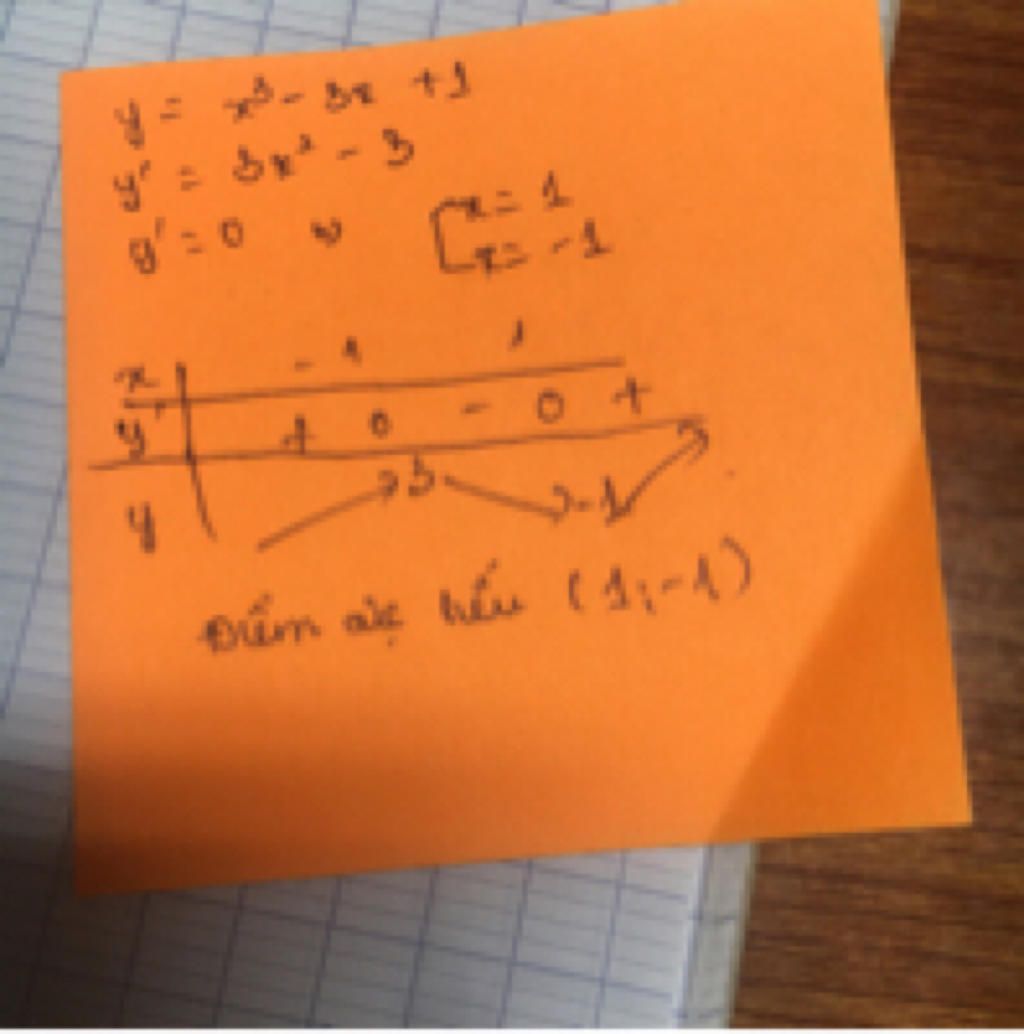 y = x³ - 3x + 1
y' = 3x² - 3
y' = 0 [x = 1
x = -1
x -1 1
y' + 0 - 0 +
y 3 -1
Điểm cực tiểu (1; -1)